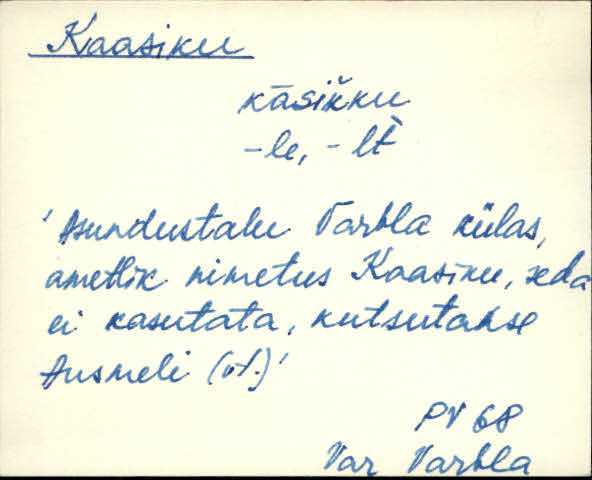 Kaasiku
kāsik̆ku
-le, -lt̀
'Asundustalu Varbla külas,
ametlik nimetus Kaasiku, seda
ei kasutata, kutsutakse
Ansmeli (vt.)'
PV 68
Var Varbla